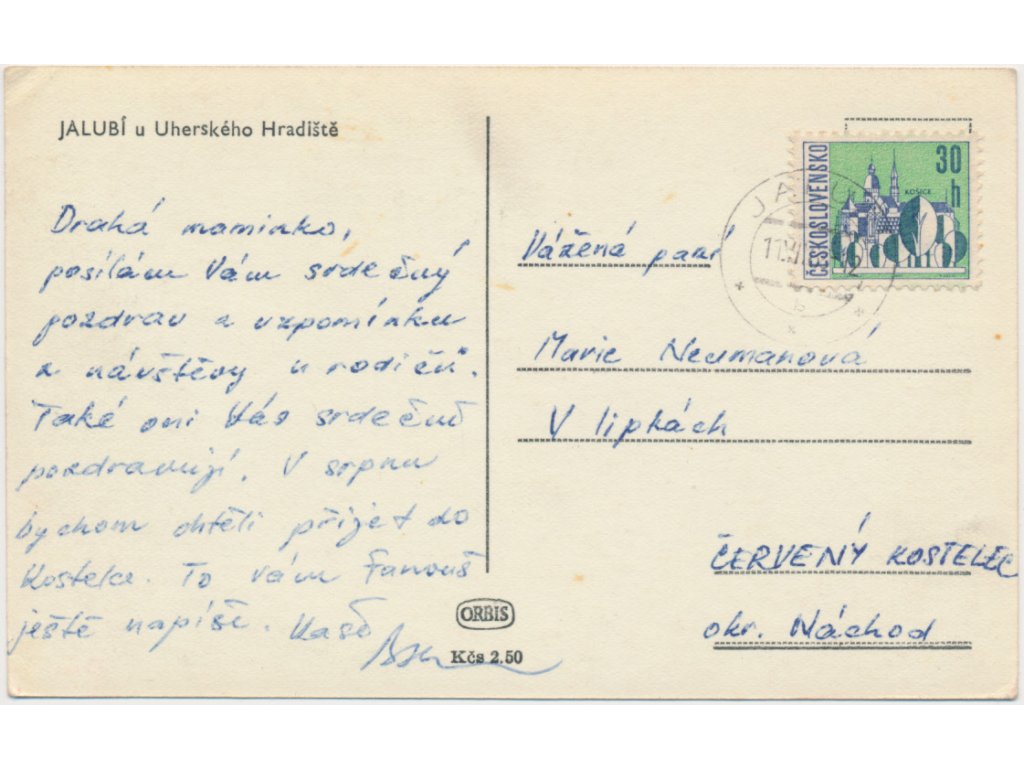 JALUBÍ u Uherského Hradiště
Drahá maminko,
posílám Vám srdečný
pozdrav a vzpomínku
z návštěvy u rodičů.
Také oni Vás srdečně
pozdravují. V srpnu
bychom chtěli přijet do
Kostelce. To vám Fanouš
ještě napíše. Vaše
ORBIS
Kčs 2.50
ČESKOSLOVENSKO
30 h
KOŠICE
Vážená paní
Marie Neumanová
V lipkách
ČERVENÝ KOSTELEC
okr. Náchod